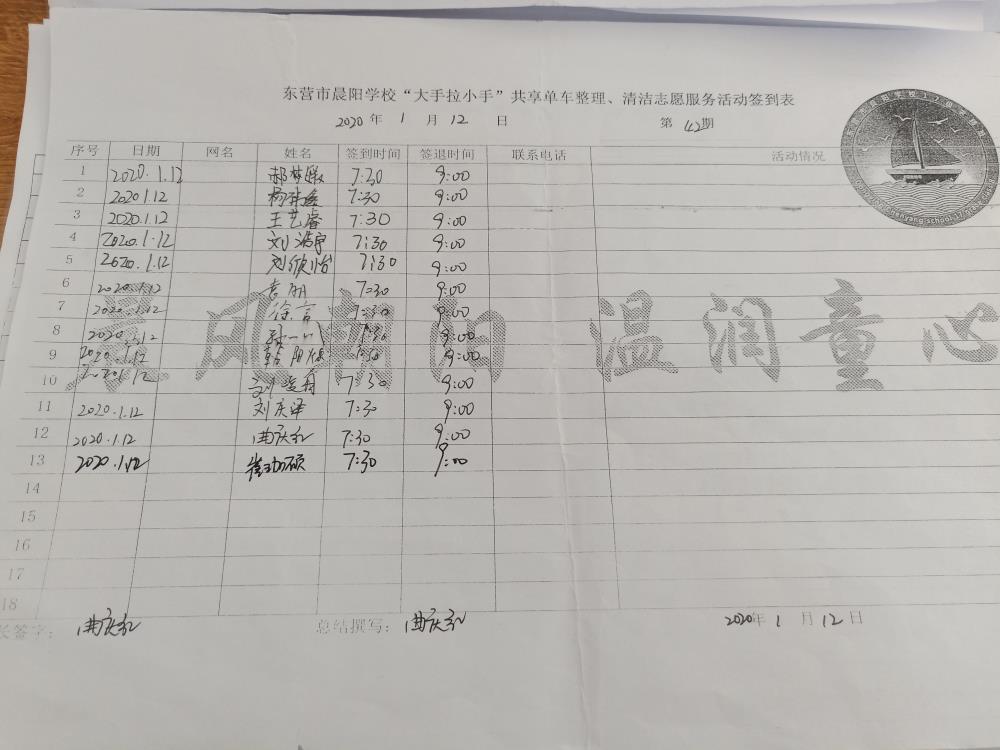 东营市晨阳学校“大手拉小手”共享单车整理、清洁志愿服务活动签到表
2020 年 1 月 12 日 第 42 期
序号 日期 网名 姓名 签到时间 签退时间 联系电话 活动情况
1 2020.1.12 7:30 9:00
2 2020.1.12 7:30 9:00
3 2020.1.12 王艺睿 7:30 9:00
4 2020.1.12 刘浩宇 7:30 9:00
5 2020.1.12 刘欣怡 7:30 9:00
6 2020.1.12 袁朋 7:30 9:00
7 2020.1.12 徐言 7:30 9:00
8 2020.1.12 7:30 9:00
9 2020.1.12 7:30 9:00
10 2020.1.12 7:30 9:00
11 2020.1.12 刘庆泽 7:30 9:00
12 2020.1.12 曲庆红 7:30 9:00
13 2020.1.12 7:30 9:00
14
15
16
17
18
晨风朝阳 温润童心
长签字: 曲庆红 总结撰写: 曲庆红 2020年 1 月 12 日